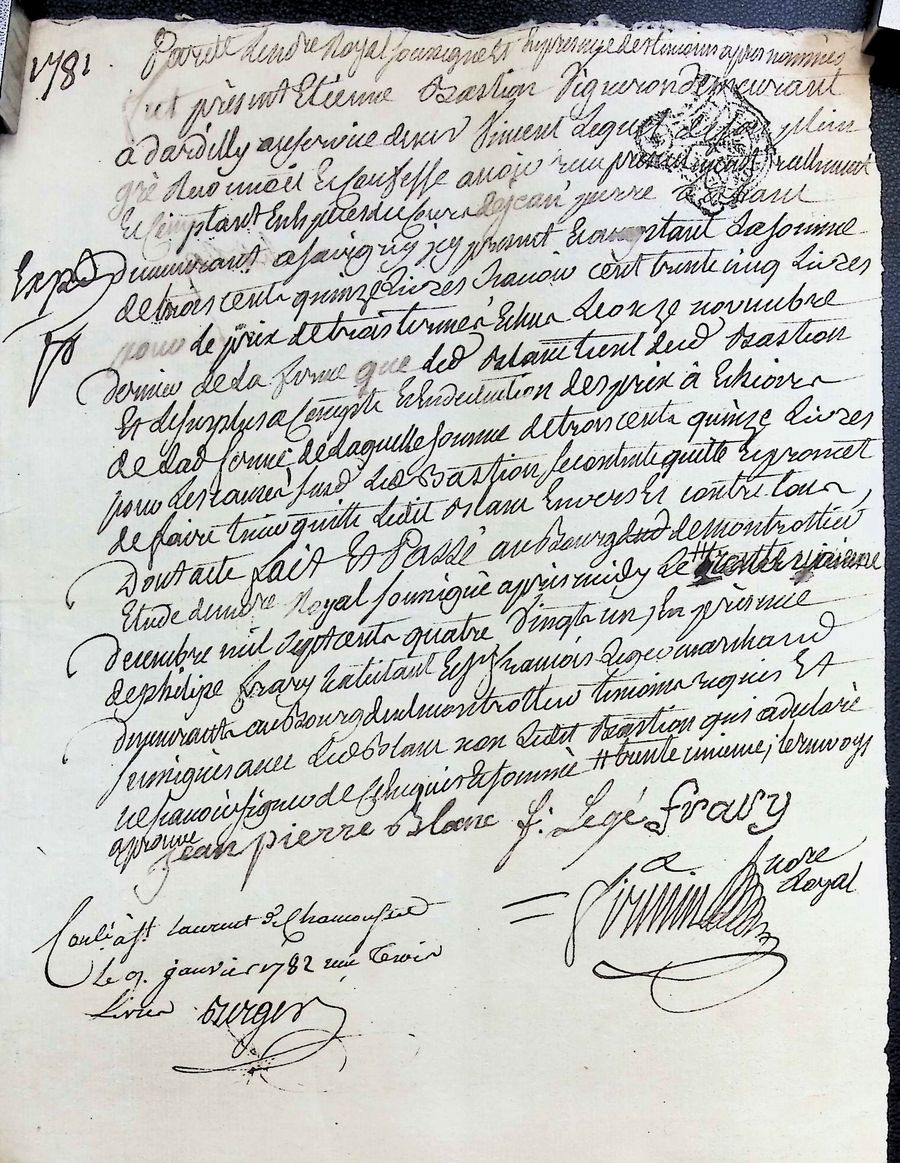 1781
Pardt Le ndre Royal soussigné Et En presence des temoins apres nommés
fut présent Etienne Bastion Vigneron Demeurant
a dardilly au service de Vincent Leguet de son plein
gré Reconnoit Et Confesse avoir reçu presentement reellement
Et Comptant En Espèces du cours de jean pierre Blanc
Demeurant a savigny icy present Et acceptant La somme
de trois cents quinze Livres scavoir cent trente cinq Livres
Expd
pour Le prix de trois termes Echus Le onze novembre
dernier de La ferme que Led Blanc tient dud Bastion
Et Le surplus a Compte Et En deduction des prix à Echeoir
de Lad ferme de Laquelle somme de trois cents quinze Livres
pour Les causes susd Led Bastion se contente quitte Et promet
de faire tenir quitte Ledit Blanc Envers Et contre tous
Dont acte fait Et Passé au Bourg de montrottier
Etude de ndre Royal soussigné apres midy Le
Decembre mil sept cents quatre Vingt un, En présence
de philipe fravy habitant Et sr françois Legé marchand
demeurants au Bourg dud montrottier temoins requis Et
soussignés avec Led Blanc non Ledit Bastion qui a declaré
ne scavoir signer de Ce Enquis Et sommé # trente unieme, renvoy
aprouvé
jean pierre Blanc f. Legé fravy
ndre
Royal
Conlé à St Laurent de Chamousset
Le 9 janvier 1782 reçu Trois
Livres Burger